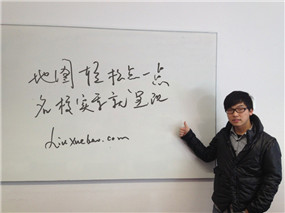 地图轻松点一点
名校实景就呈现
Liuxuebao.com